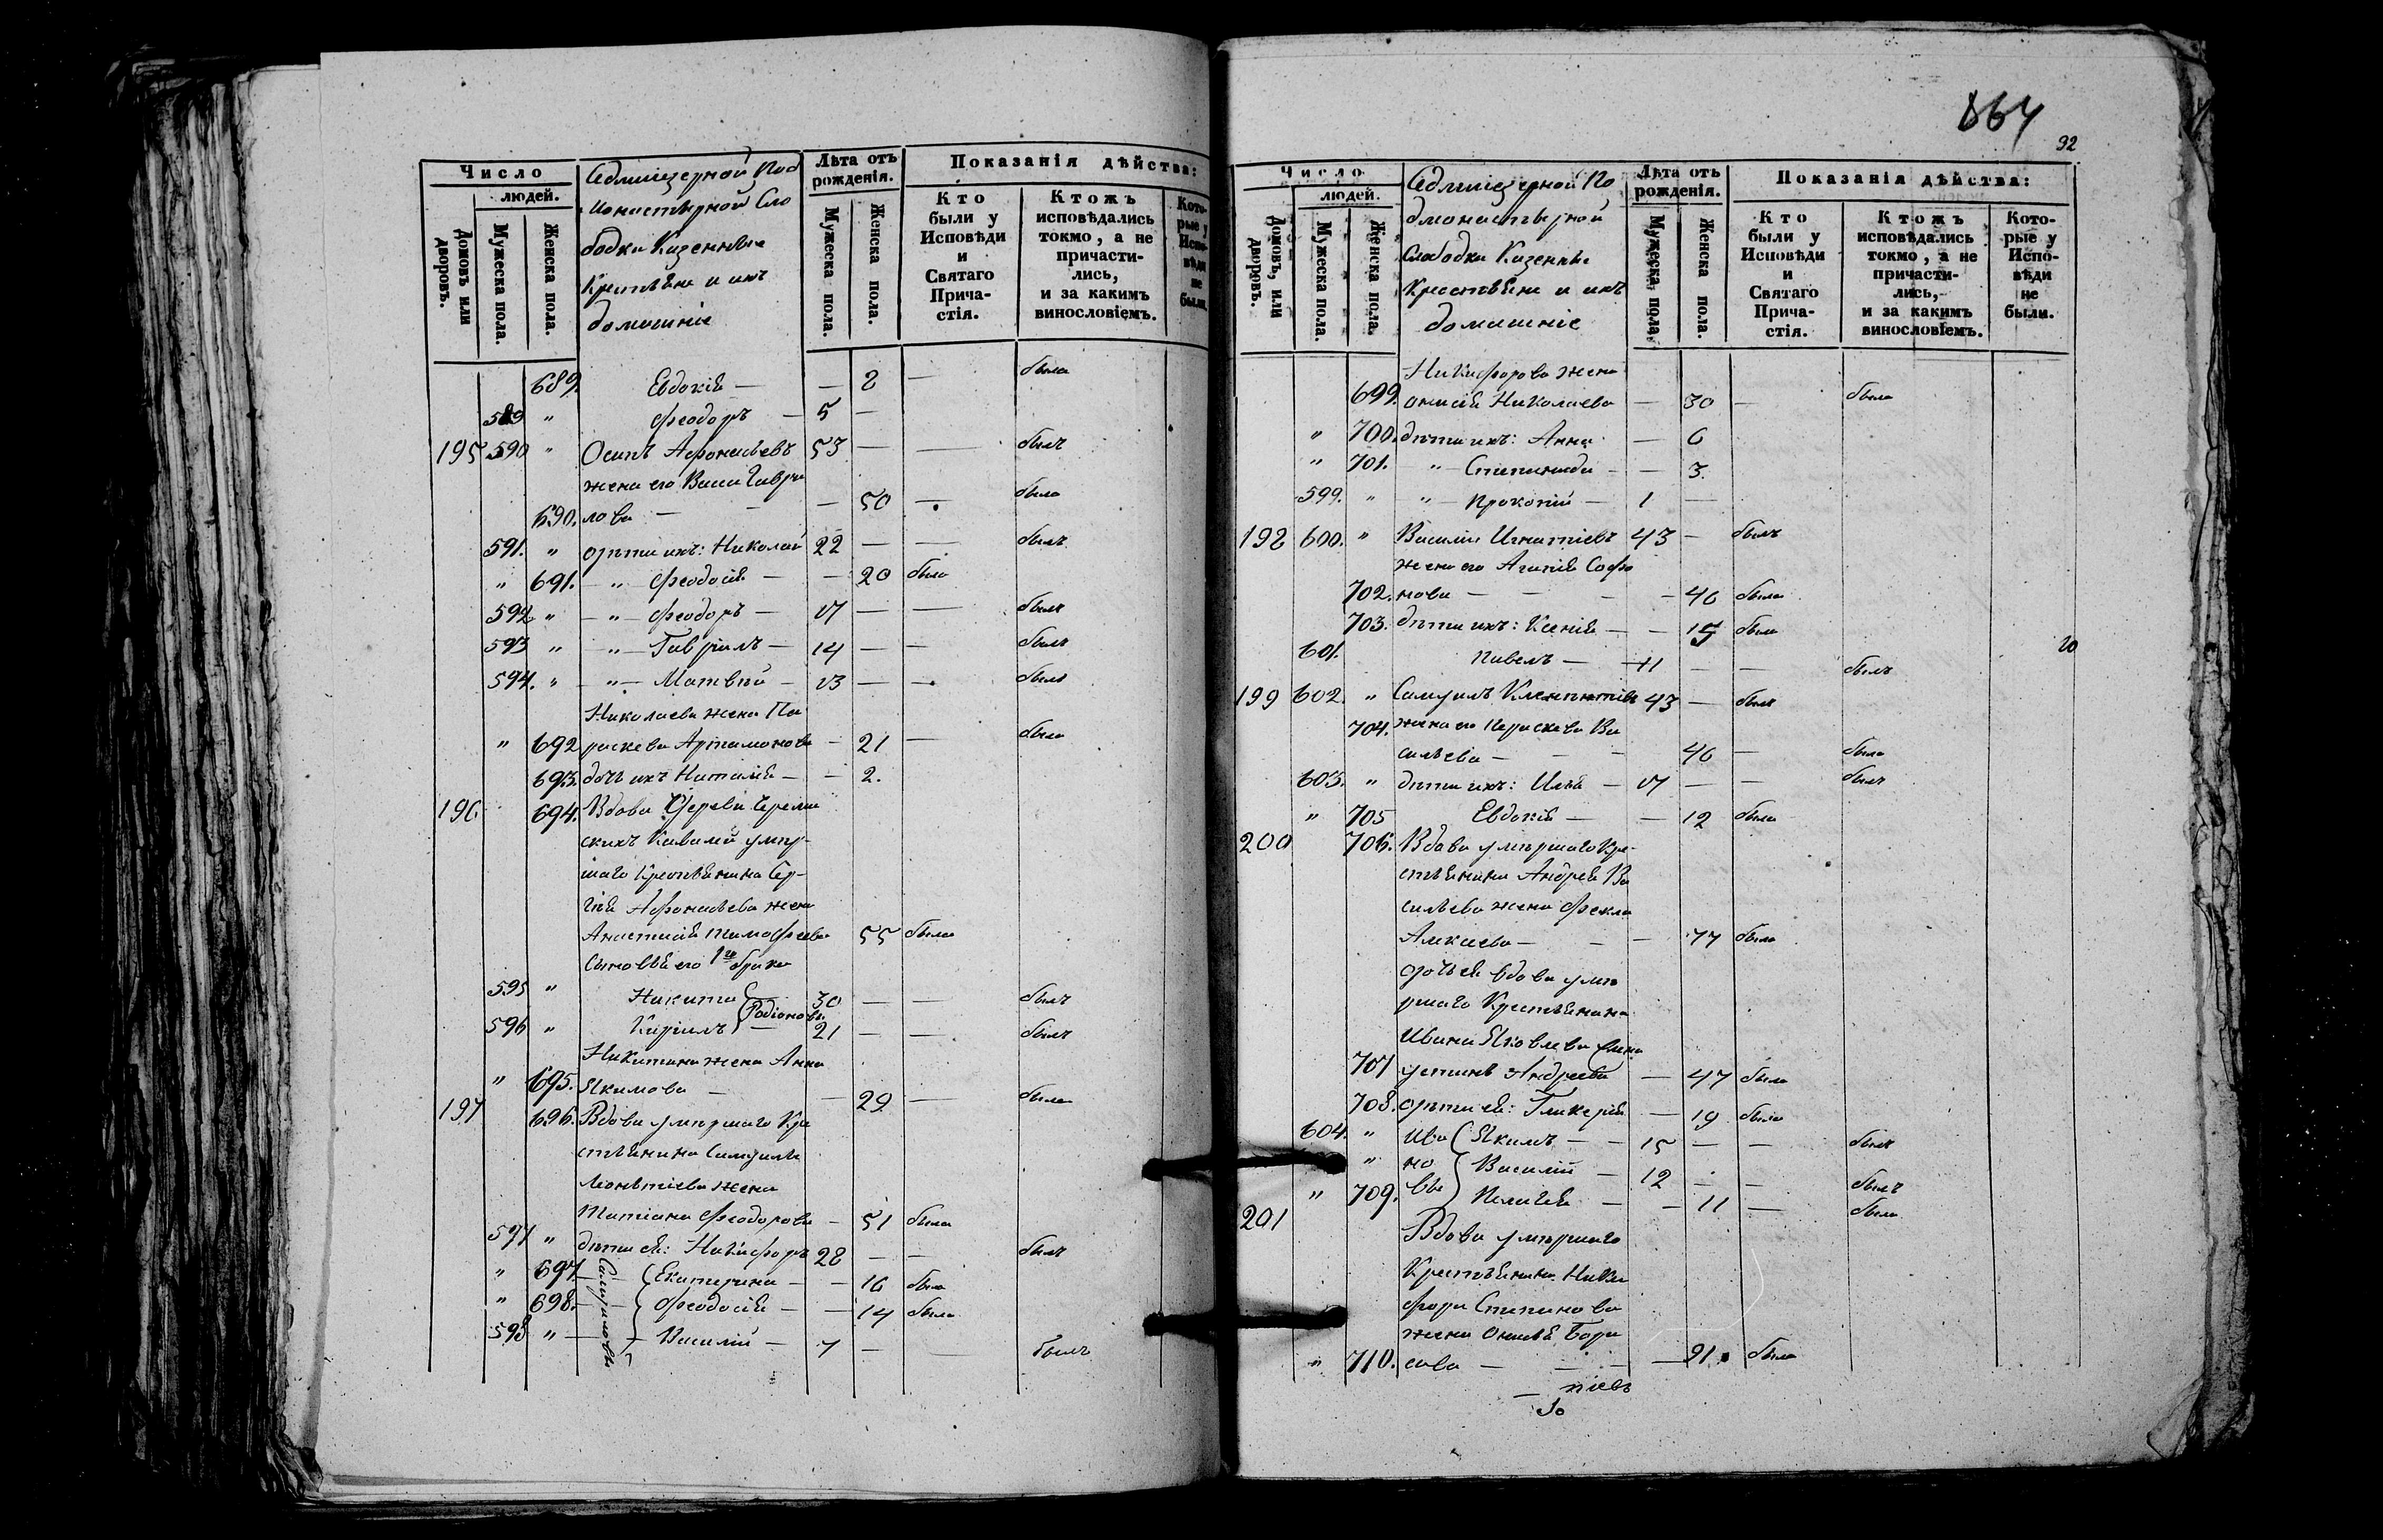 Число
людей.
Домовъ или дворовъ.
Мужеска пола.
Женска пола.
Седмиезерной Под
монастырной Сло
бодки Казенные
Крестьяне и ихъ
домашніе
Лѣта отъ рожденія.
Мужеска пола.
Женска пола.
Показанія дѣйства:
Кто были у Исповѣди и Святаго Причастія.
Ктожъ исповѣдались токмо, а не причастились, и за какимъ винословіемъ.
Которые у Исповѣди не были.
689. Евдокія — — 8 — была
589 " Феодоръ — 5 —
195 590 " Осипъ Афонасьевъ 53 — — былъ
жена его Васа Гаври
690. лова — — — 50 — была
591. " дѣти ихъ: Николай 22 — — былъ
" 691. — " Феодосія — — 20 была
592 " — " — Феодоръ — 17 — — былъ
593 " — " — Гаврилъ — 14 — — былъ
594. " — " — Матвѣй — 13 — — былъ
Николаева жена Па
" 692 раскева Артамонова — 21 — была
693. дочь ихъ Наталія — — 2.
196. 694. Вдова
умер-
шаго Крестьянина Сер-
гія Афонасьева жена
Анастасія Тимофеева 55 была
Сыновья его 1го брака
595 " Никита 30 — — былъ
Родіоновы
596 " Кирилъ — 21 — — былъ
Никитина жена Анна
" 695. Якимова — — 29 — была
197 696. Вдова умершаго Кре
стьянина Самуила
Леонтіева жена
Татіана Феодорова — 51 была
597 " дѣти ея: Никифоръ 28 — — былъ
" 697 — Екатерина — — 16 была
" 698. — Феодосія — — 14 была
Самуиловы
598 " — Василій — 7 — — былъ
864
92
Число
людей.
Домовъ, или дворовъ.
Мужеска пола.
Женска пола.
Седмиезерной По
дмонастырной
Слободки Казенные
Крестьяне и ихъ
домашніе
Лѣта отъ рожденія.
Мужеска пола.
Женска пола.
Показанія дѣйства:
Кто были у Исповѣди и Святаго Причастія.
Ктожъ исповѣдались токмо, а не причастились, и за какимъ винословіемъ.
Которые у Исповѣди не были.
Никифорова жена
699. Анисія Николаева — 30 — была
" 700. дѣти ихъ: Анна — 6
" 701. " — Степанида — — 3.
599. " " — Прокопій — 1 —
198 600. " Василій Игнатіевъ 43 — былъ
жена его Агапія Софо
702. нова — — — — 46 была
703. дѣти ихъ: Ксенія — — 15 была
601. Павелъ — 11 — — былъ
199 602. " Самуилъ Клементіевъ 43 — былъ
704. жена его Параскева Ва
сильева — — — 46 — была
603. " дѣти ихъ: Илья — 17 — — былъ
" 705 Евдокія — — 12 была
200 706. Вдова умершаго Кре-
стьянина Андрея Ва
сильева жена Фекла
Алкаева — — — 77 была
дочь ея вдова уме
ршаго Крестьянина
Ивана Яковлева жена
707 Устинья Андреева — 47 была
708. дѣти ея: Гликерія — 19 была
604. " Ива Якимъ — — 15 — — былъ
" но Василій — 12 — — былъ
" 709. вы Пелагія — — 11 — была
201
Вдова умершаго
Крестьянина Ники
фора Степанова
жена Анисья Бори
" 710. сова — — — — 91 была